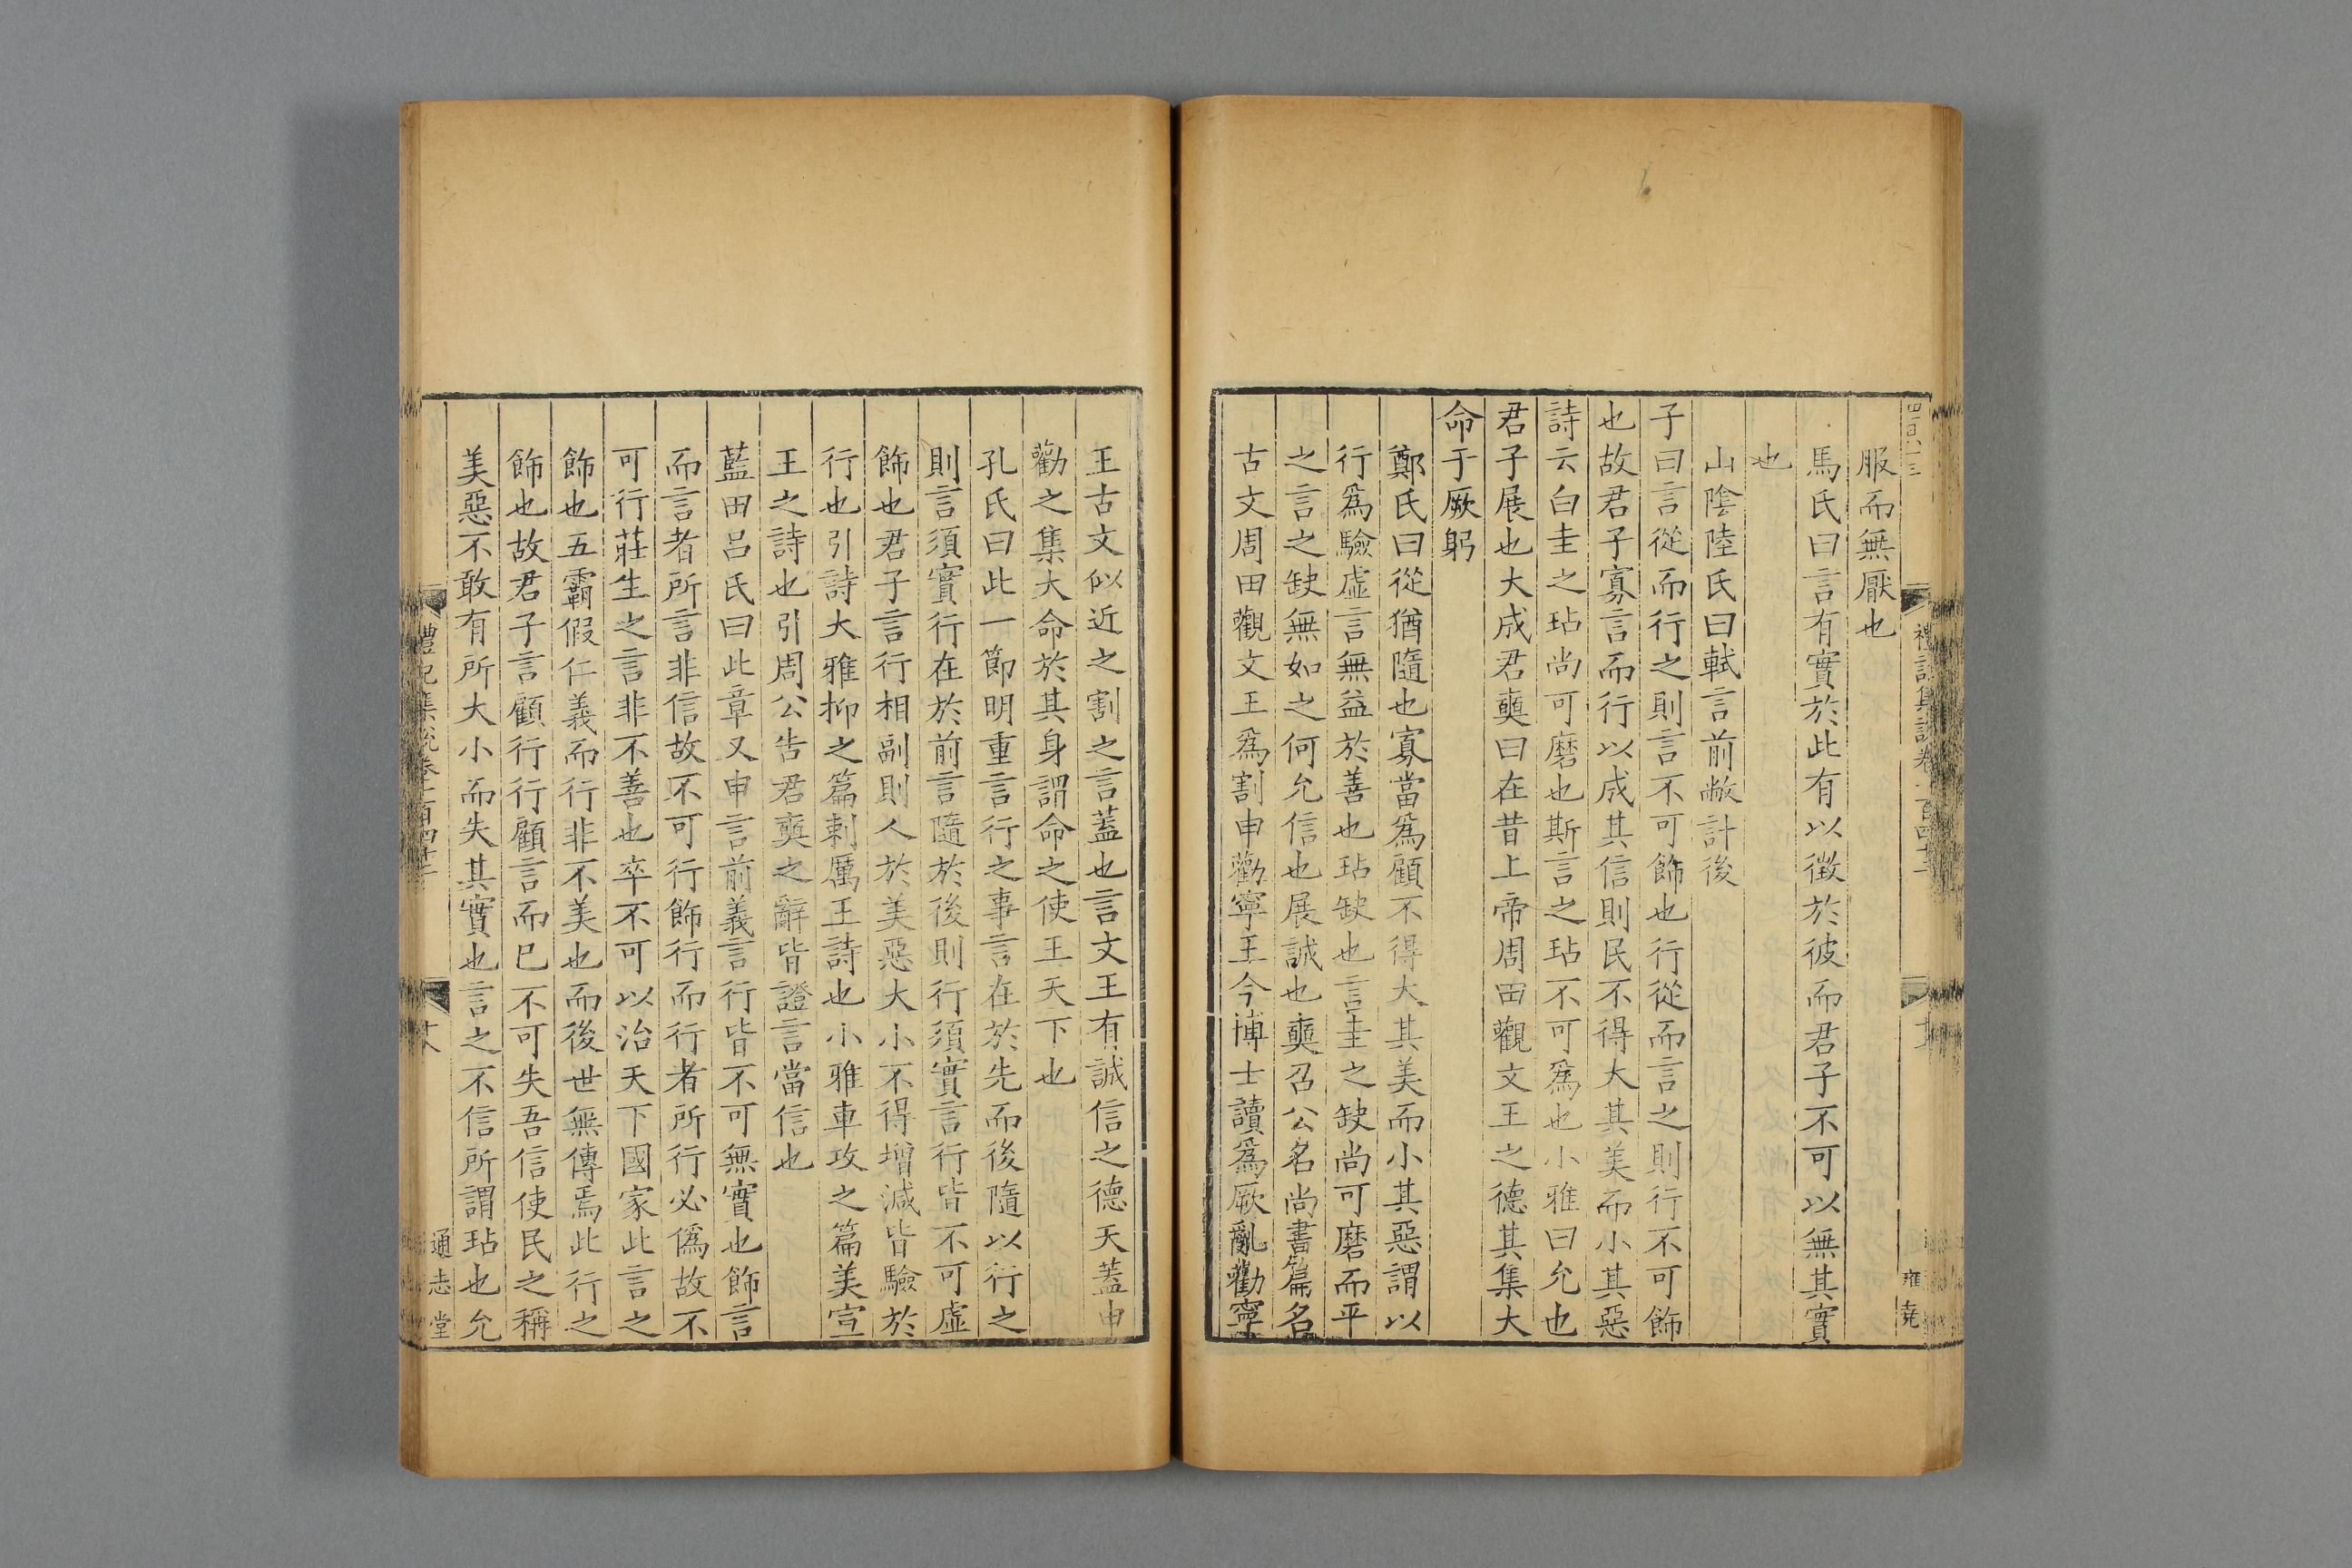 服而無厭也
馬氏曰言有實於此有以徵於彼而君子不可以無其實
也
山陰陸氏曰軾言前敝計後
子曰言從而行之則言不可飾也行從而言之則行不可飾
也故君子寡言而行以成其信則民不得大其美而小其惡
詩云白圭之玷尚可磨也斯言之玷不可爲也小雅曰允也
君子展也大成君奭曰在昔上帝周田觀文王之德其集大
命于厥躬
鄭氏曰從猶隨也寡當爲顧不得大其美而小其惡謂以
行爲驗虛言無益於善也玷缺也言圭之缺尚可磨而平
之言之缺無如之何允信也展誠也奭召公名尚書篇名
古文周田觀文王爲割申勸寧王今博士讀爲厥亂勸寧
王古文似近之割之言蓋也言文王有誠信之德天蓋申
勸之集大命於其身謂命之使王天下也
孔氏曰此一節明重言行之事言在於先而後隨以行之
則言須實行在於前言隨於後則行須實言行皆不可虛
飾也君子言行相副則人於美惡大小不得增減皆驗於
行也引詩大雅抑之篇刺厲王詩也小雅車攻之篇美宣
王之詩也引周公告君奭之辭皆證言當信也
藍田呂氏曰此章又申言前義言行皆不可無實也飾言
而言者所言非信故不可行飾行而行者所行必僞故不
可行莊生之言非不善也卒不可以治天下國家此言之
飾也五霸假仁義而行非不美也而後世無傳焉此行之
飾也故君子言顧行行顧言而已不可失吾信使民之稱
美惡不敢有所大小而失其實也言之不信所謂玷也允
禮記集說卷一百四十二
通志堂